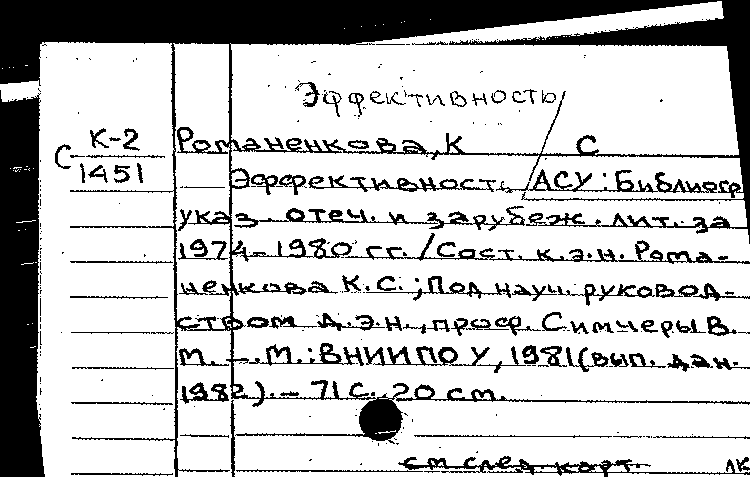 Эффективность
К-2
С 1451
Романенкова, К С
Эффективность АСУ: Библиогр
указ. отеч. и зарубеж. лит. за
1974-1980 гг. /Сост. к.э.н. Рома-
ненкова К.С.; Под науч. руковод-
ством д.э.н., проф. Симчеры В.
М. -. М.: ВНИИПОУ, 1981(вып. дан.
1982). - 71 с. 20 см.
см след карт.